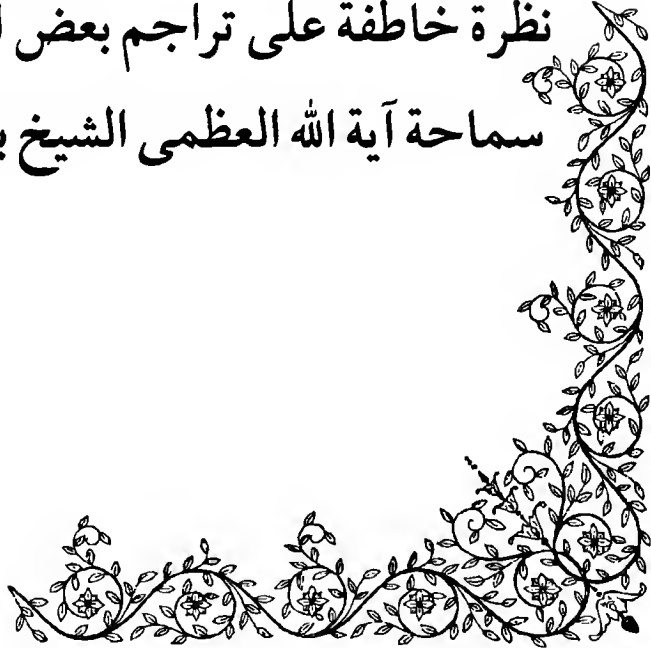 نظرة خاطفة على تراجم بعض
سماحة آية الله العظمى الشيخ